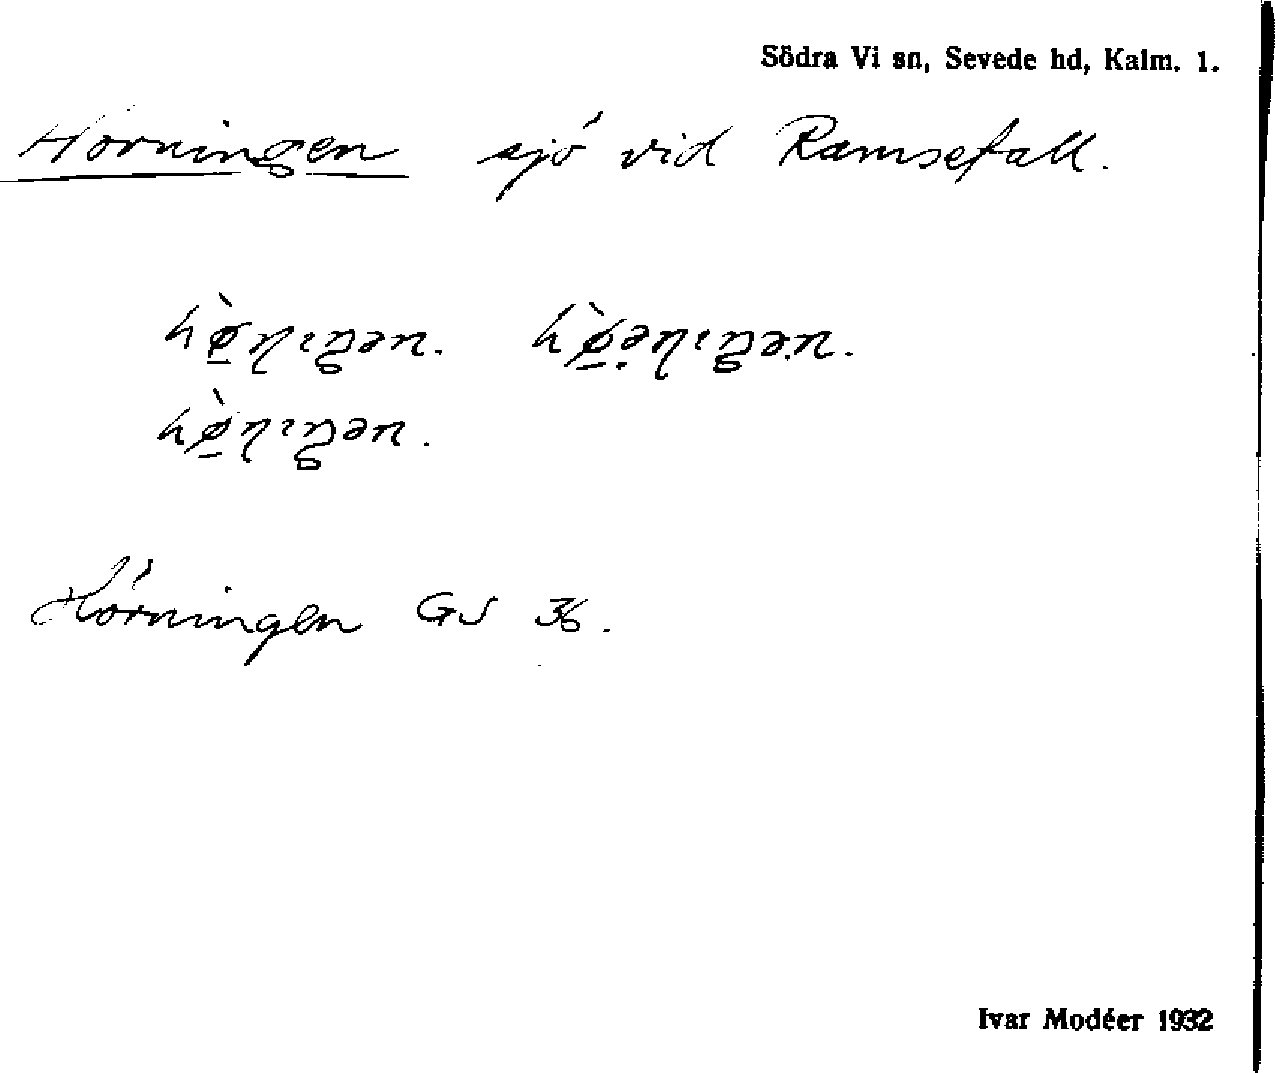 Södra Vi sn, Sevede hd, Kalm. l.
Hörningen sjö vid Ramsefall.
hø̀ṇiŋən. hø̀əṇiŋən.
hø̀ṇiŋən.
Hörningen GS 36.
Ivar Modéer 1932